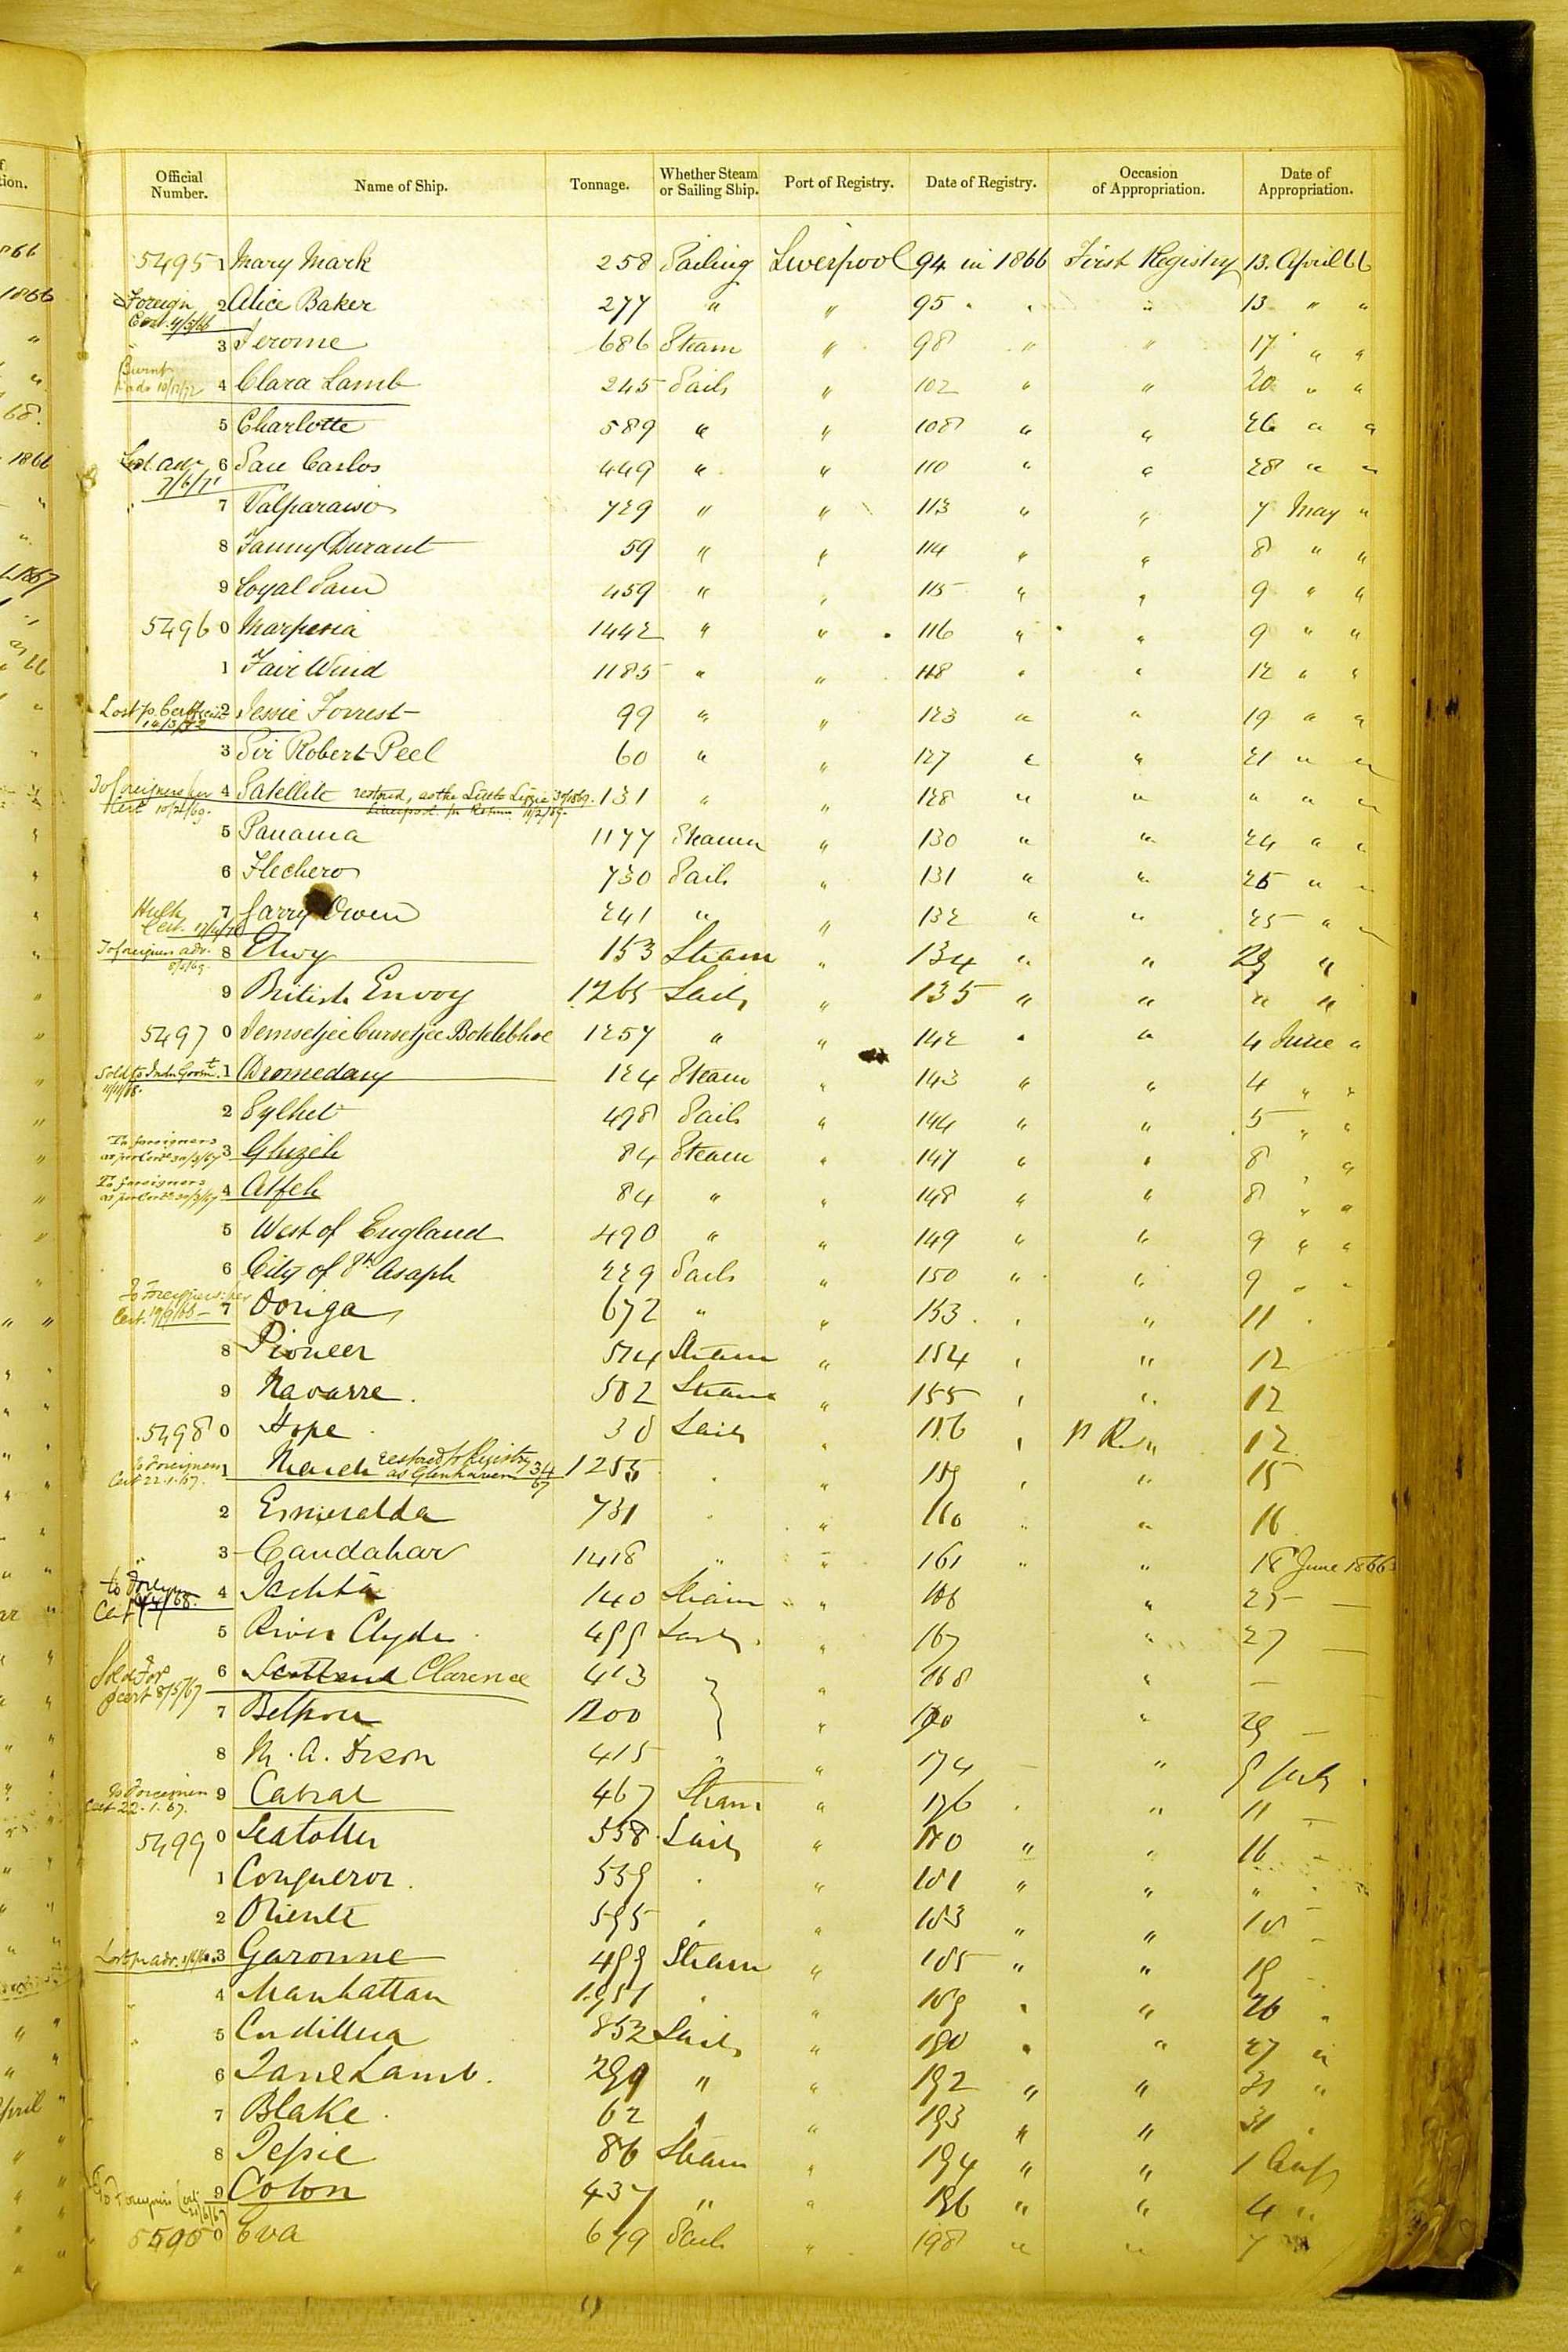 Official Number. Name of Ship. Tonnage. Whether Steam or Sailing Ship. Port of Registry. Date of Registry. Occasion of Appropriation. Date of Appropriation.
5495 1 Mary Mark 258 Sailing Liverpool 94 in 1866 First Registry 13. April 66
Foreign Cert. 4/5/66 2 Alice Baker 277 " " 95 " " 13 " "
3 Jerome 686 Steam " 98 " " 17 " "
Burnt adv 10/12/72 4 Clara Lamb 245 Sails " 102 " " 20 " "
5 Charlotte 589 " " 108 " " 26 " "
Lost adv 7/6/71 6 San Carlos 449 " " 110 " " 28 " "
7 Valparaiso 729 " " 113 " " 7 May "
8 Fanny Durant 59 " " 114 " " 8 " "
9 Loyal Sam 459 " " 115 " " 9 " "
5496 0 Marpesia 1442 " " 116 " " 9 " "
1 Fair Wind 1185 " " 118 " " 12 " "
Lost p. Certificate 2 Jessie Forrest 99 " " 123 " " 19 " "
3 Sir Robert Peel 60 " " 127 " " 21 " "
To foreigners per Cert 10/2/69. 4 Satellite restored, as the Little Lizzie Liverpool. pr Return 11/2/69. 131 " " 128 " " " " "
5 Panama 1177 Steam " 130 " " 24 " "
6 Flechero 730 Sails " 131 " " 25 " "
Hulk Cert. 7 Garry Owen 241 " " 132 " " 25 " "
To foreigners adv. 8 Elwy 153 Steam " 134 " " 29 "
9 British Envoy 1265 Sails " 135 " " " "
5497 0 Jemsetjee Cursetjee Botlebhoe 1257 " " 142 " " 4 June "
Sold to Indn Govmt. 1 Dromedary 124 Steam " 143 " " 4 " "
2 Sylhet 498 Sails " 144 " " 5 " "
To foreigners as per Cert 3 Ghizeh 84 Steam " 147 " " 8 " "
To foreigners as per Cert 4 Atfeh 84 " " 148 " " 8 " "
5 West of England 490 " " 149 " " 9 " "
6 City of St. Asaph 229 Sails " 150 " " 9 " "
To Foreigners per Cert. 19/9/65 7 Ooriga 672 " " 153 " " 11 "
8 Pioneer 574 Steam " 154 " " 12
9 Navarre. 502 Steam " 155 " " 12
5498 0 Hope 30 Sails " 156 " " 12
To Foreigners Cert 22.1.67. 1 March restored to Registry as Glenhaven 1255 " 159 " " 15
2 Esmeralda 731 " " 160 " " 16
3 Candahar 1418 " " 161 " " 18 June 1866
to Foreign Cert 4 140 Steam " 166 " 25 —
5 River Clyde 499 Sails " 167 " 27 —
Sold For cert 8/5/67 6 Scotland Clarence 413 " 168 " —
7 1200 " 170 " 29 —
8 M. A. Dixon 415 " " 174 " 9 July
To Foreigners Cert 22.1.67. 9 Cabral 467 Steam " 176 " 11 —
5499 0 Seatoller 558 Sails " 180 " " 16 —
1 Conqueror. 539 " " 181 " " "
2 Oriente 595 " " 183 " " 18
Lost pr adv. 3 Garonne 499 Steam " 185 " " 19
4 Manhattan 1957 " " 189 " " 26 "
5 Cordillera 852 Sails " 190 " " 27 "
6 Jane Lamb. 299 " " 192 " " 31 "
7 Blake. 62 " " 193 " " 31 "
8 Jessie 86 Steam " 194 " " 1 Aug
To Foreigners Cert 9 Colon 437 " " 196 " " 4 "
5500 0 Eva 679 Sails " 198 " " 7